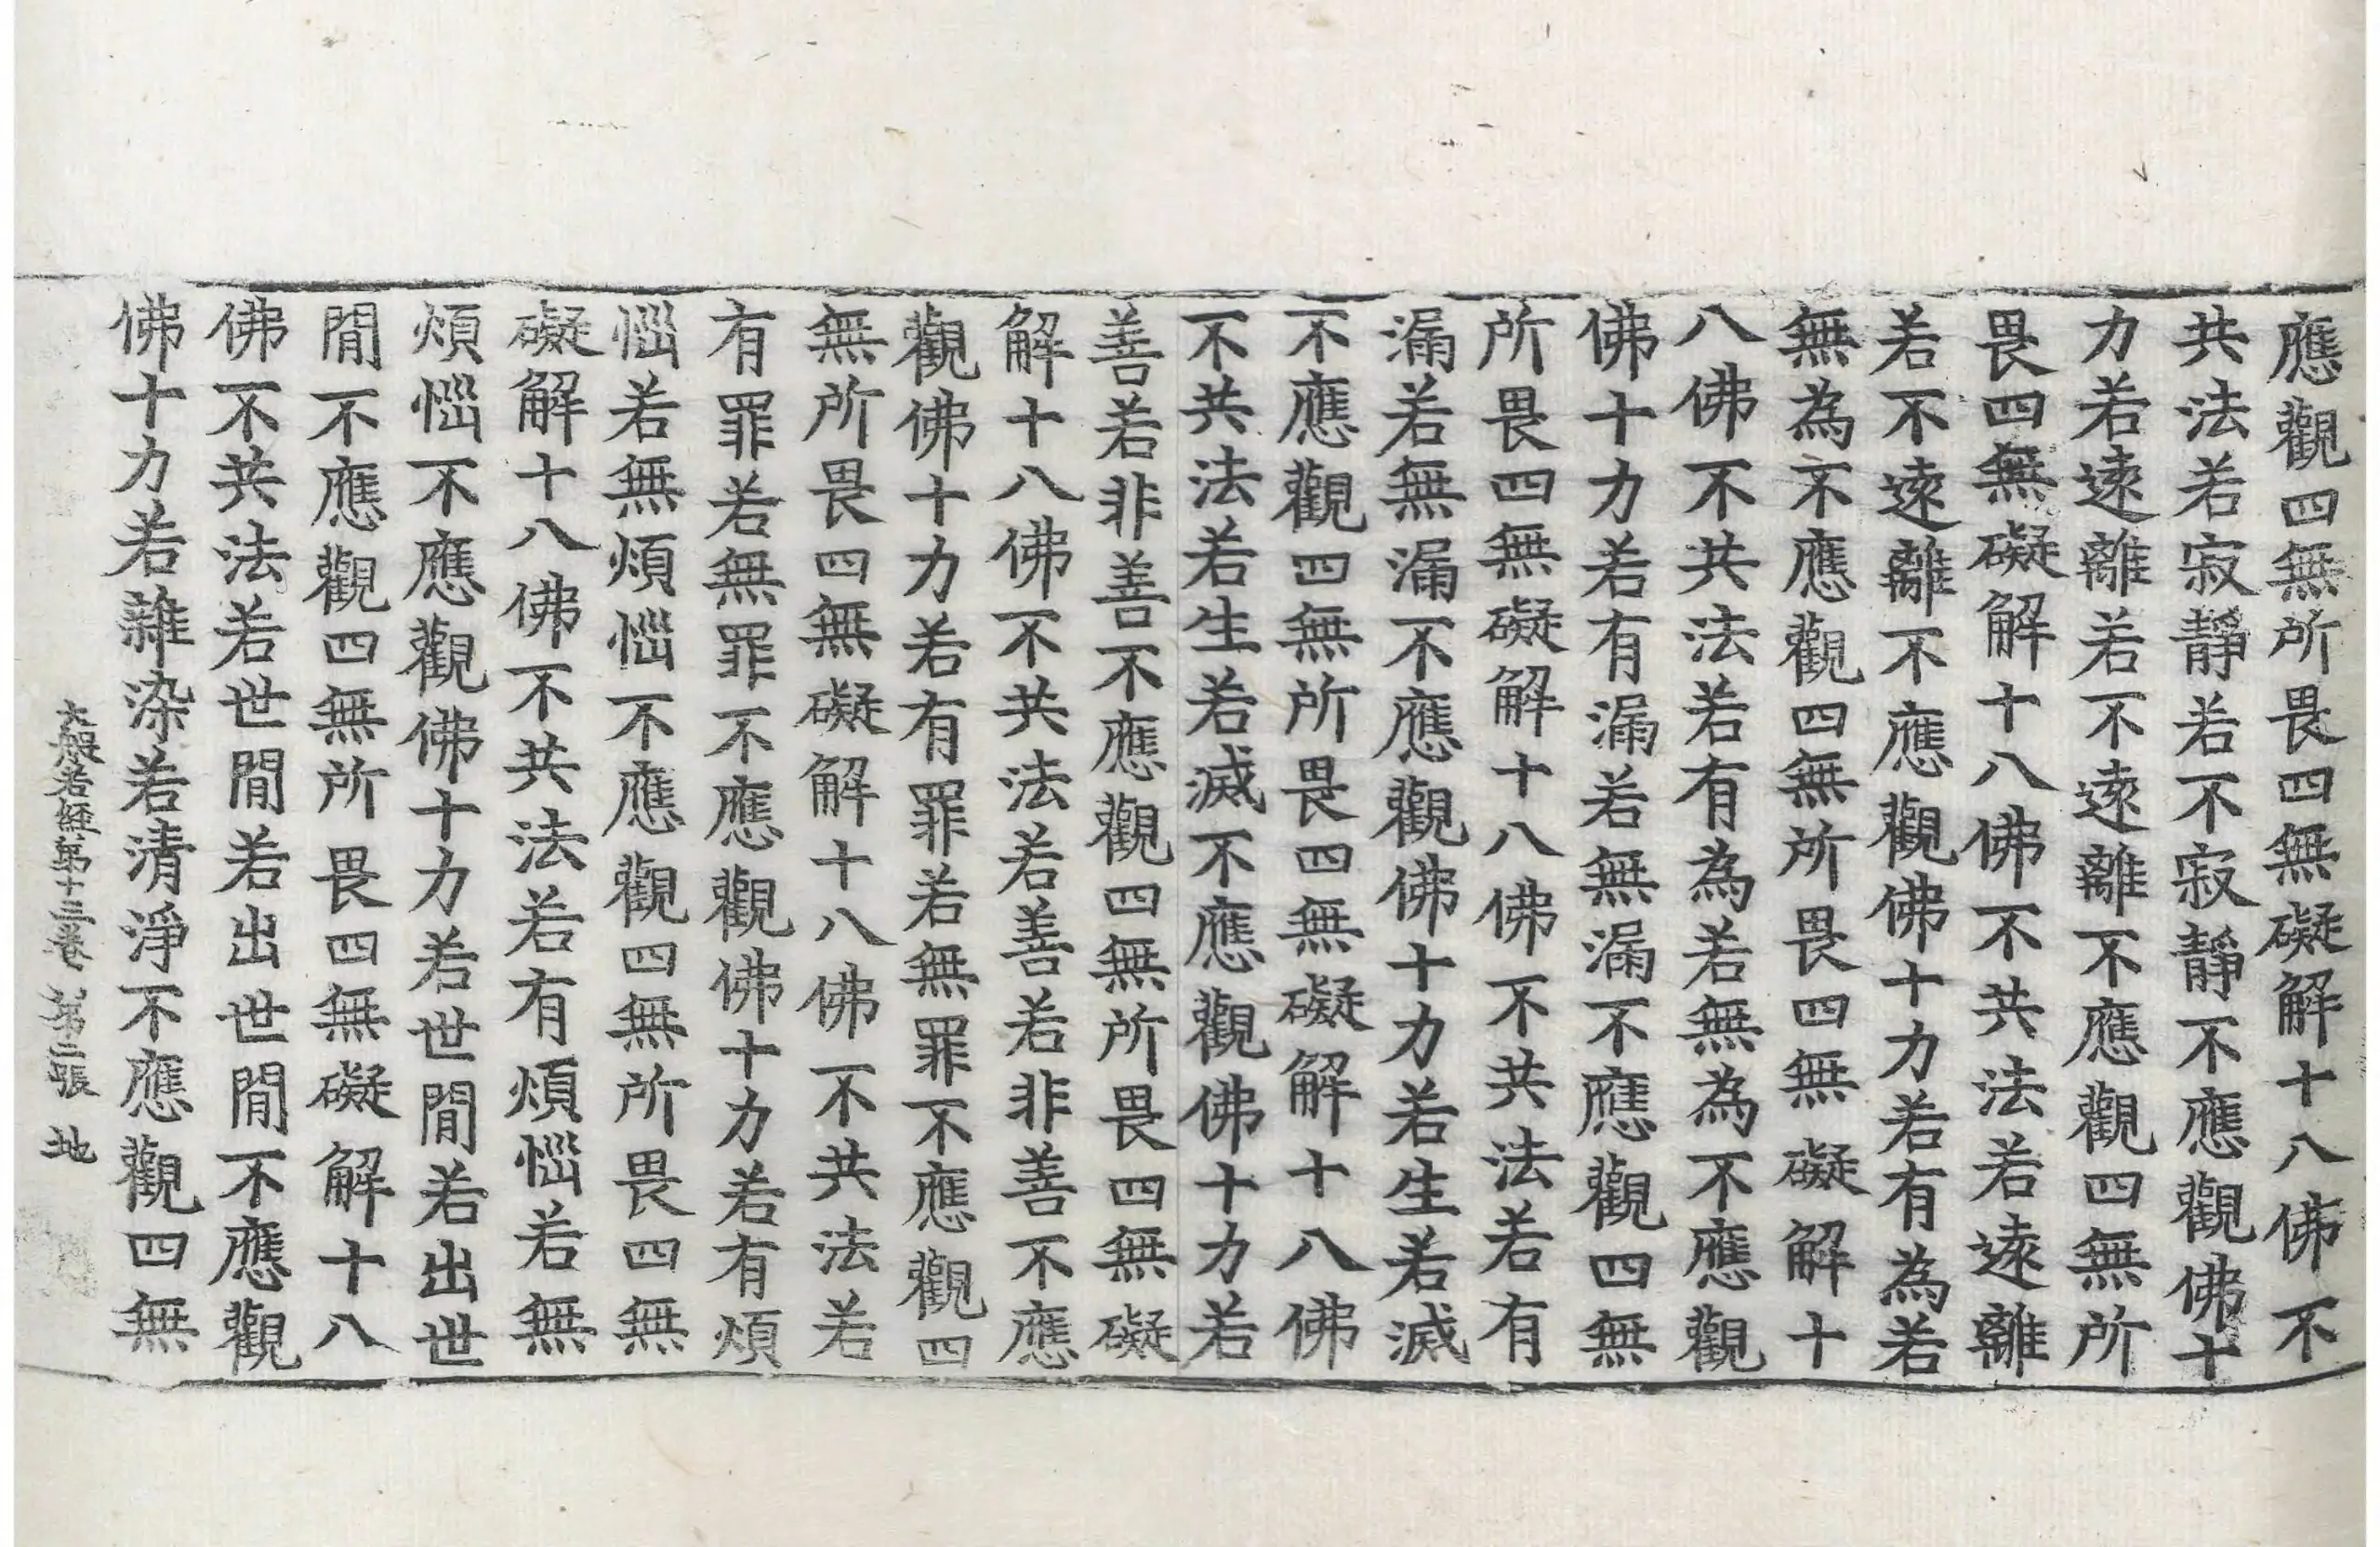 應觀四無所畏四無礙解十八佛不
共法若寂靜若不寂靜不應觀佛十
力若遠離若不遠離不應觀四無所
畏四無礙解十八佛不共法若遠離
若不遠離不應觀佛十力若有為若
無為不應觀四無所畏四無礙解十
八佛不共法若有為若無為不應觀
佛十力若有漏若無漏不應觀四無
所畏四無礙解十八佛不共法若有
漏若無漏不應觀佛十力若生若滅
不應觀四無所畏四無礙解十八佛
不共法若生若滅不應觀佛十力若
善若非善不應觀四無所畏四無礙
解十八佛不共法若善若非善不應
觀佛十力若有罪若無罪不應觀四
無所畏四無礙解十八佛不共法若
有罪若無罪不應觀佛十力若有煩
惱若無煩惱不應觀四無所畏四無
礙解十八佛不共法若有煩惱若無
煩惱不應觀佛十力若世間若出世
間不應觀四無所畏四無礙解十八
佛不共法若世間若出世間不應觀
佛十力若雜染若清淨不應觀四無
大般若経第十三卷 第二張 地